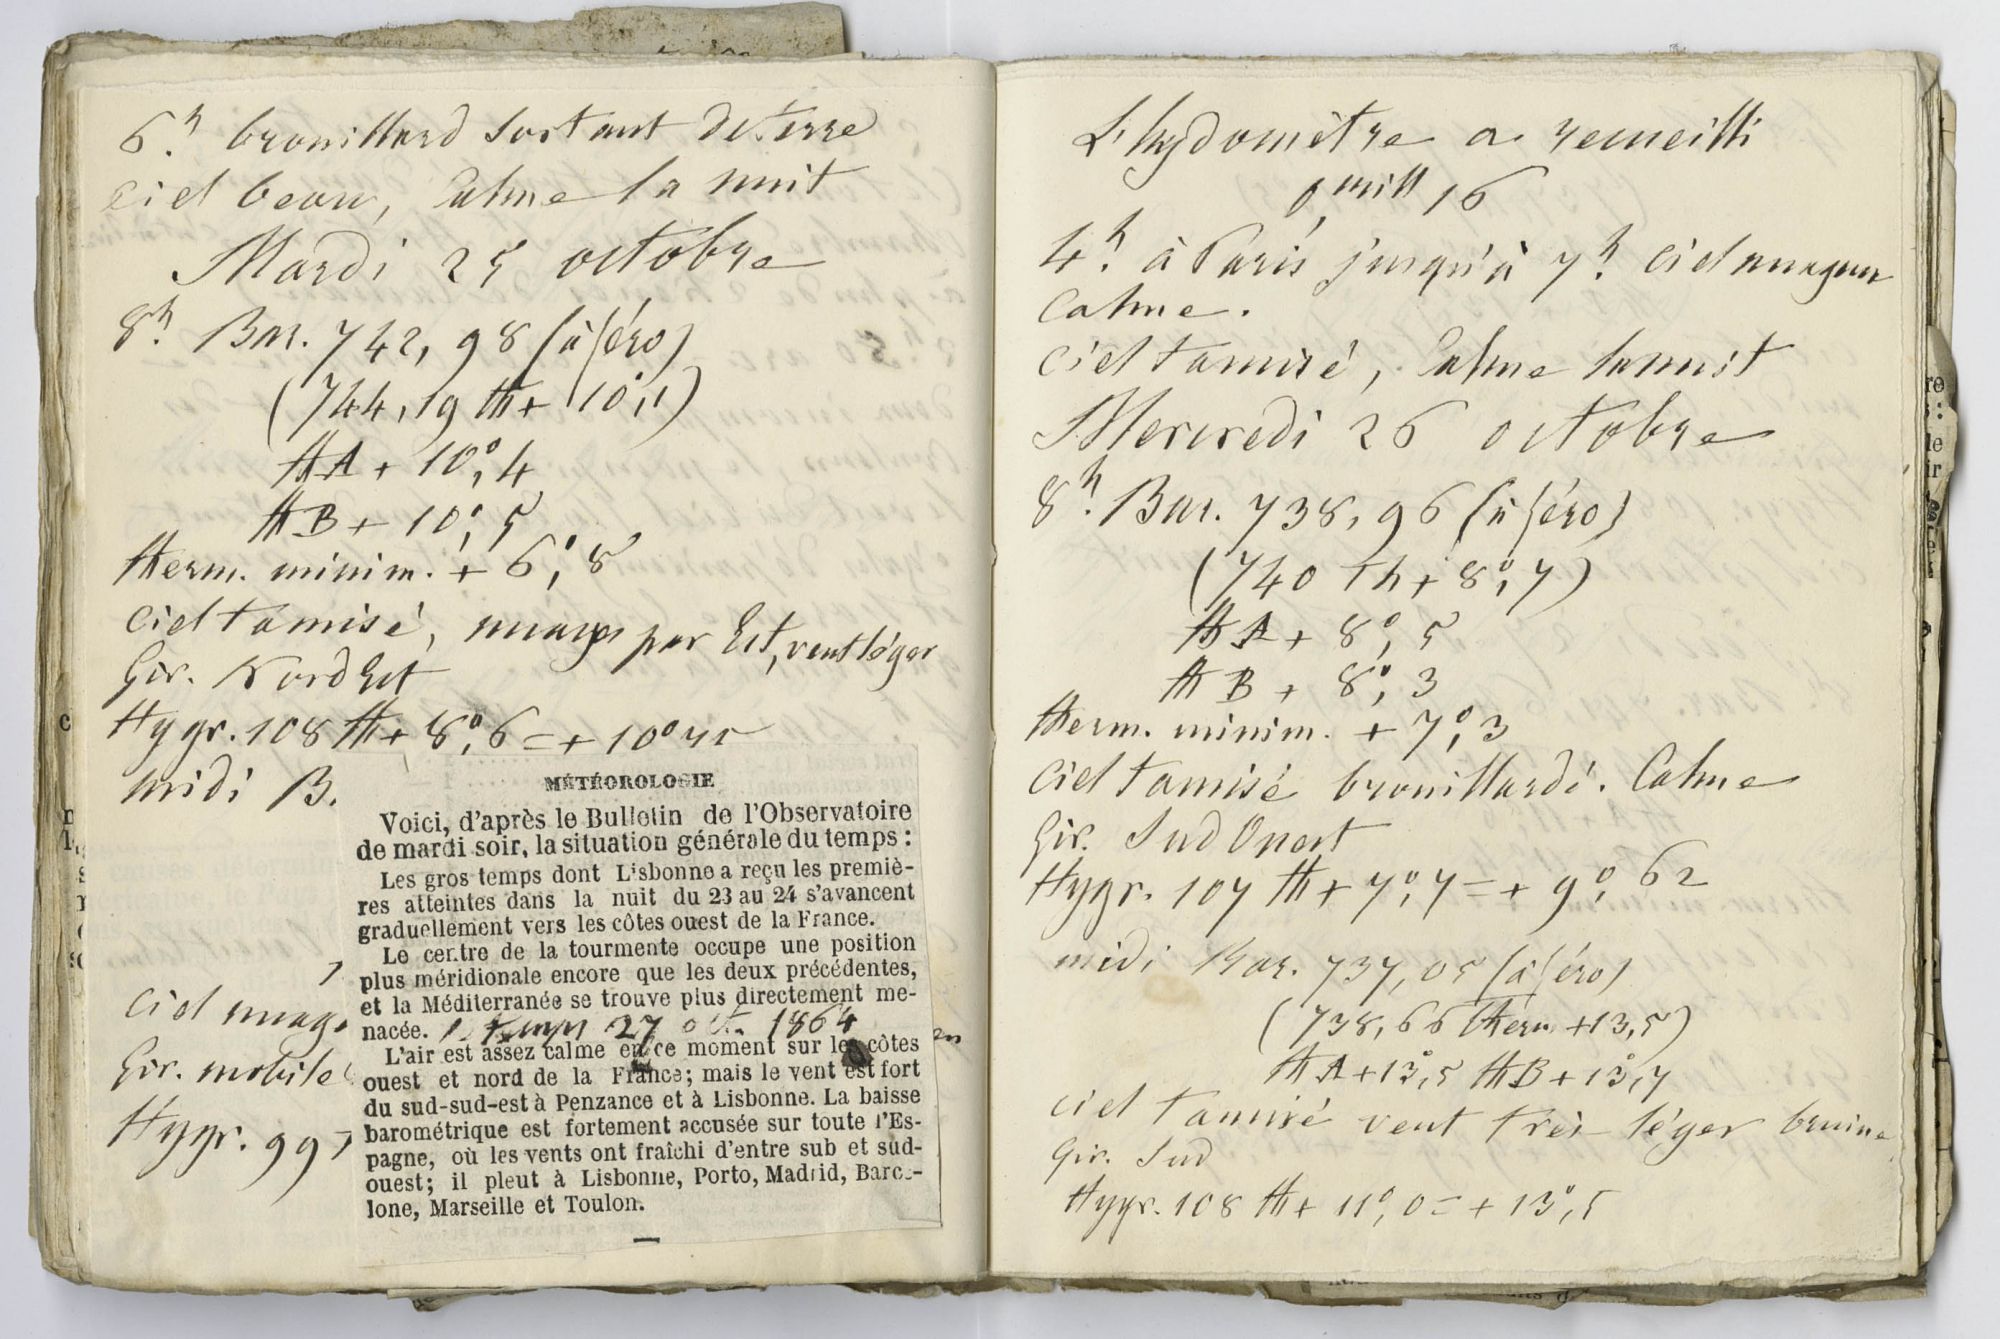 6h. brouillard sortant de terre
ciel beau, Calme la nuit
Mardi 25 octobre
8h. Bar. 742,98 (à zéro)
(744,19 th + 10°,1)
th A + 10°,4
th B + 10°,5
therm. minim. + 6°,8
ciel tamisé, nuages par Est, vent léger
Gir. Nord Est
Hygr. 108 th + 8°,6 = + 10°,45
midi B.
ciel nuage
Gir. mobile
Hygr. 99
MÉTÉOROLOGIE
Voici, d'après le Bulletin de l'Observatoire
de mardi soir, la situation générale du temps :
Les gros temps dont Lisbonne a reçu les premiè-
res atteintes dans la nuit du 23 au 24 s'avancent
graduellement vers les côtes ouest de la France.
Le centre de la tourmente occupe une position
plus méridionale encore que les deux précédentes,
et la Méditerranée se trouve plus directement me-
nacée. 27 oct. 1864
L'air est assez calme en ce moment sur les côtes
ouest et nord de la France; mais le vent est fort
du sud-sud-est à Penzance et à Lisbonne. La baisse
barométrique est fortement accusée sur toute l'Es-
pagne, où les vents ont fraîchi d'entre sub et sud-
ouest; il pleut à Lisbonne, Porto, Madrid, Barce-
lone, Marseille et Toulon.
L'hydomètre a recueilli
0,mill 16
4h. à Paris jusqu'à 7h. ciel nuageux
Calme.
ciel tamisé, Calme la nuit
Mercredi 26 octobre
8h. Bar. 738,96 (à zéro)
(740 Th + 8°,7)
th A + 8°,5
th B + 8°,3
therm. minim. + 7°,3
ciel tamisé brouillardé. Calme
Gir. Sud Ouest
Hygr. 107 th + 7°,7 = + 9°,62
midi Bar. 737,05 (à zéro)
(738,66 therm +13,5)
th A + 13°,5 th B + 13°,7
ciel tamisé vent très léger bruine
Gir. Sud
Hygr. 108 th + 11°,0 = + 13°,5